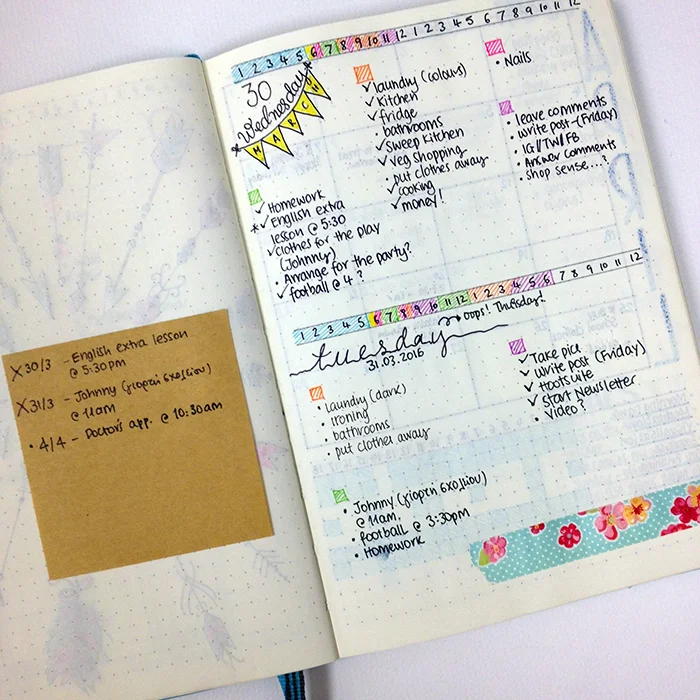 X 30/3 - English extra lesson
@ 5:30pm
X 31/3 - Johnny (γιορτή σχολείου)
@ 11am
• 4/4 - Doctor's app. @ 10:30am
1 2 3 4 5 6 7 8 9 10 11 12 1 2 3 4 5 6 7 8 9 10 11 12
30
*Wednesday*
MARCH
✓ Homework
*✓ English extra
lesson @ 5:30
✓ clothes for the play
(Johnny)
• Arrange for the party?
✓ football @ 4?
✓ laundry (colours)
✓ Kitchen
✓ fridge
• bathrooms
✓ sweep kitchen
✓ veg shopping
• put clothes away
✓ cooking
✓ money!
• Nails
• leave comments
• write post (Friday)
• IG/TW/FB
• Answer comments
• shop sense...?
1 2 3 4 5 6 7 8 9 10 11 12 1 2 3 4 5 6 7 8 9 10 11 12
tuesday
oops! Thursday!
31.03.2016
• laundry (dark)
• ironing
• bathrooms
• put clothes away
✓ Take pics
✓ write post (Friday)
✓ hootsuite
✓ start Newsletter
• Video?
• Johnny (γιορτή σχολείου)
@ 11am.
• football @ 3:30pm
• Homework